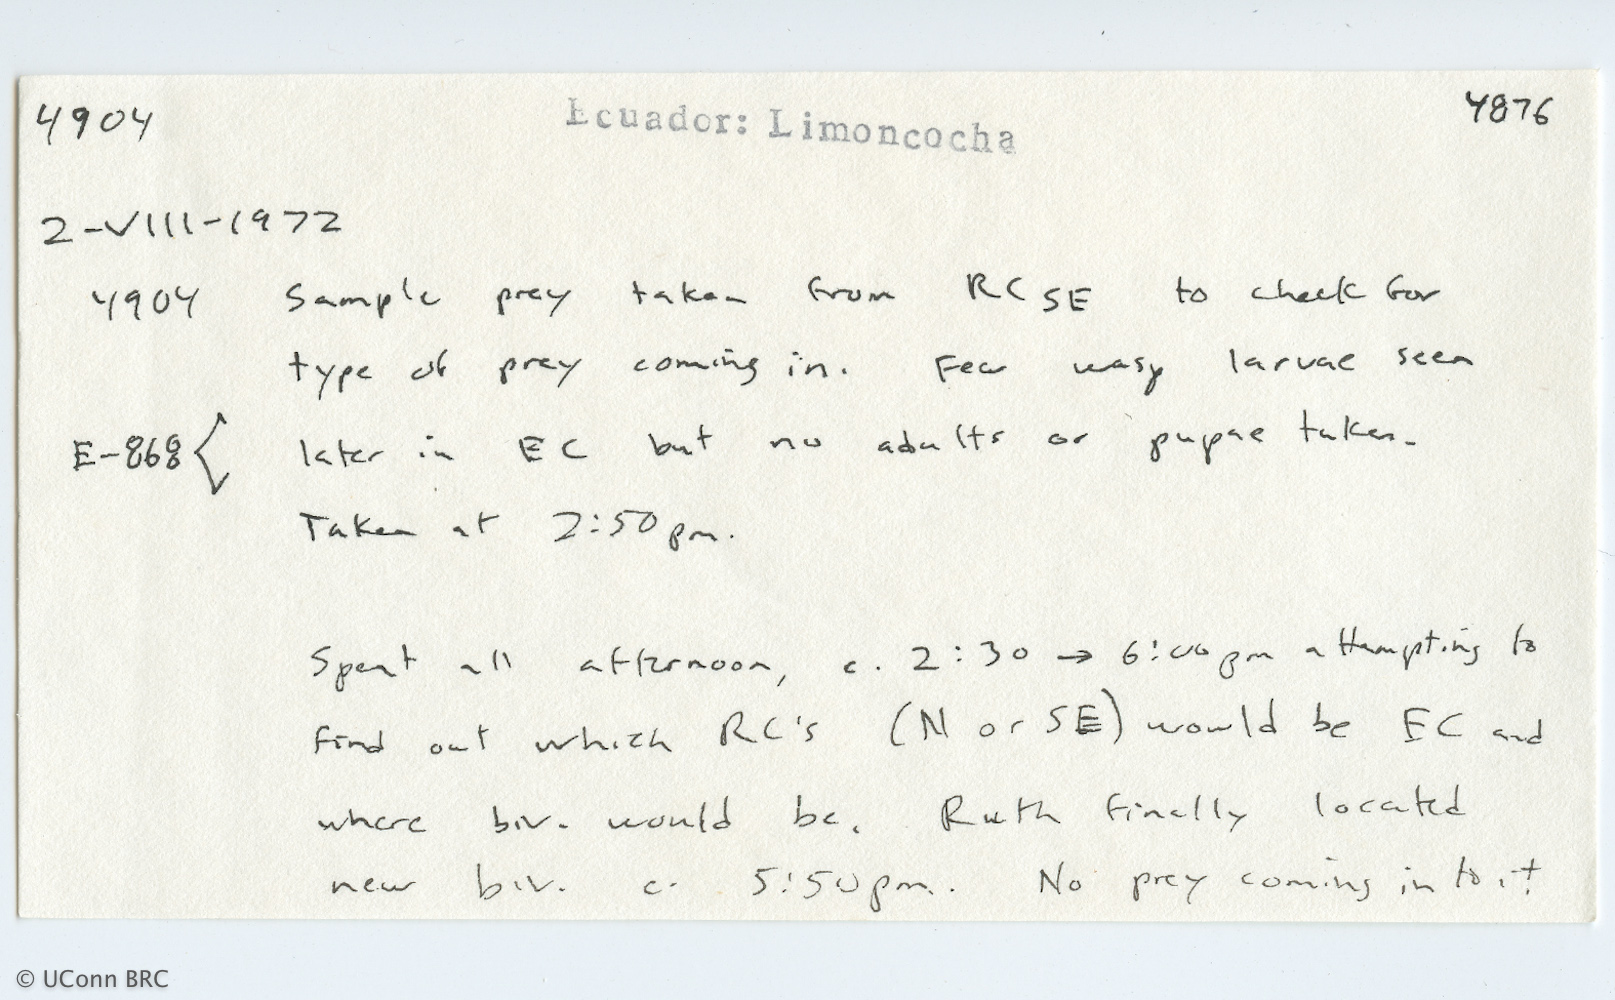 4904 Ecuador: Limoncocha 4876
2-VIII-1972
4904 Sample prey taken from RC SE to check for
type of prey coming in. Few wasp larvae seen
E-868 { later in EC but no adults or pupae taken.
Taken at 2:50 pm.
Spent all afternoon, c. 2:30 → 6:00 pm attempting to
find out which RC's (N or SE) would be EC and
where biv. would be. Ruth finally located
new biv. c. 5:50 pm. No prey coming in to it
© UConn BRC